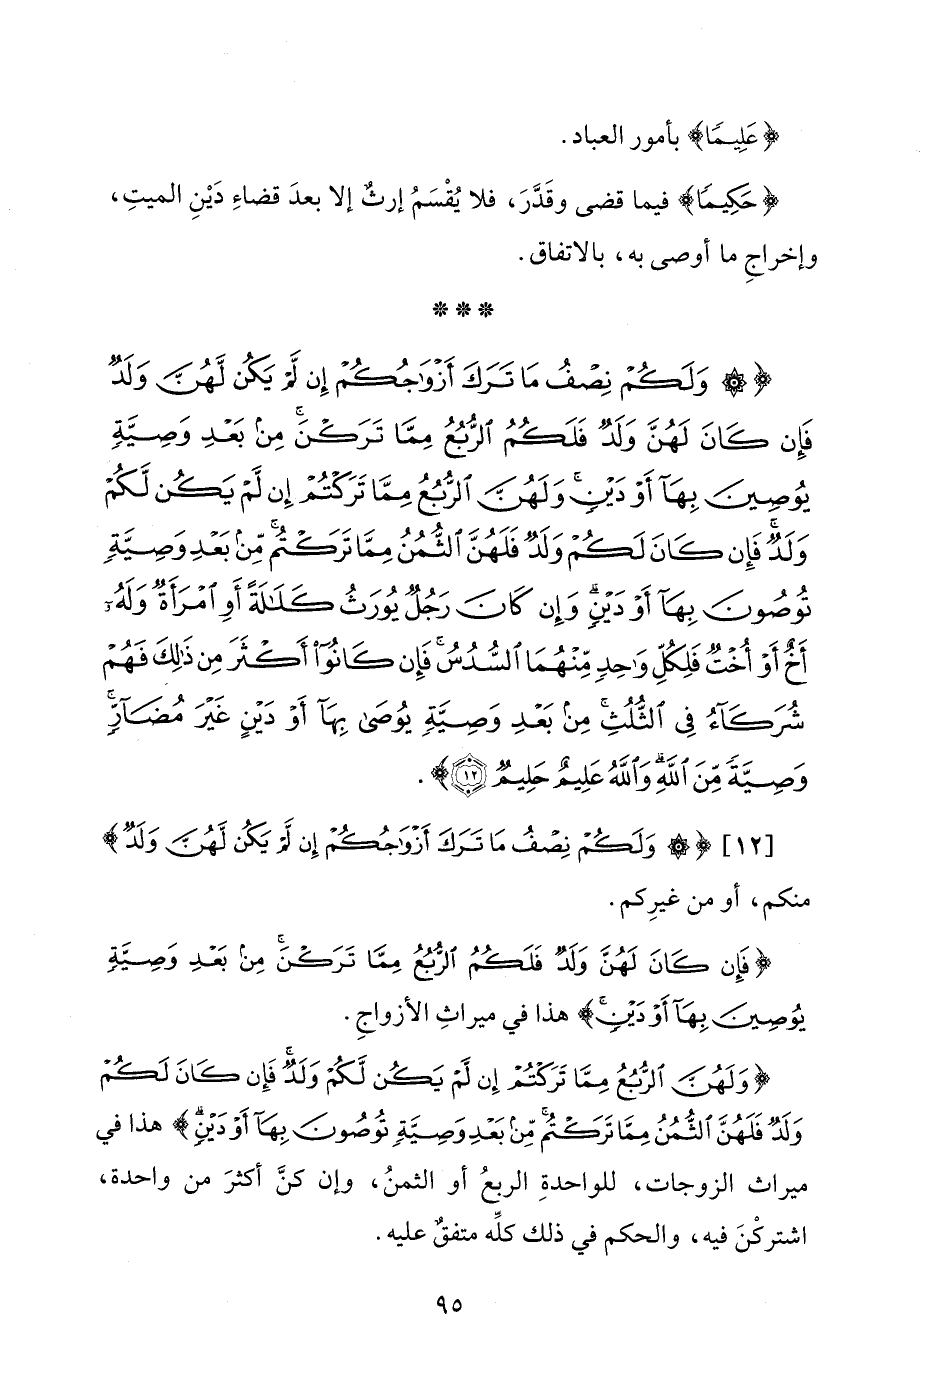 ﴿عَلِيمًا﴾ بأمور العباد.
﴿حَكِيمًا﴾ فيما قضى وقَدَّرَ، فلا يُقْسَمُ إرثٌ إلا بعدَ قضاءِ دَيْنِ الميتِ،
وإخراجِ ما أوصى به، بالاتفاق.
* * *
﴿ ۞ وَلَكُمْ نِصْفُ مَا تَرَكَ أَزْوَٰجُكُمْ إِن لَّمْ يَكُن لَّهُنَّ وَلَدٌ
فَإِن كَانَ لَهُنَّ وَلَدٌ فَلَكُمُ ٱلرُّبُعُ مِمَّا تَرَكْنَ ۚ مِنۢ بَعْدِ وَصِيَّةٍ
يُوصِينَ بِهَآ أَوْ دَيْنٍ ۚ وَلَهُنَّ ٱلرُّبُعُ مِمَّا تَرَكْتُمْ إِن لَّمْ يَكُن لَّكُمْ
وَلَدٌ ۚ فَإِن كَانَ لَكُمْ وَلَدٌ فَلَهُنَّ ٱلثُّمُنُ مِمَّا تَرَكْتُم ۚ مِّنۢ بَعْدِ وَصِيَّةٍ
تُوصُونَ بِهَآ أَوْ دَيْنٍ ۗ وَإِن كَانَ رَجُلٌ يُورَثُ كَلَٰلَةً أَوِ ٱمْرَأَةٌ وَلَهُۥٓ
أَخٌ أَوْ أُخْتٌ فَلِكُلِّ وَٰحِدٍ مِّنْهُمَا ٱلسُّدُسُ ۚ فَإِن كَانُوٓا۟ أَكْثَرَ مِن ذَٰلِكَ فَهُمْ
شُرَكَآءُ فِى ٱلثُّلُثِ ۚ مِنۢ بَعْدِ وَصِيَّةٍ يُوصَىٰ بِهَآ أَوْ دَيْنٍ غَيْرَ مُضَآرٍّ ۚ
وَصِيَّةً مِّنَ ٱللَّهِ ۗ وَٱللَّهُ عَلِيمٌ حَلِيمٌ ١٢ ﴾.
[١٢] ﴿ ۞ وَلَكُمْ نِصْفُ مَا تَرَكَ أَزْوَٰجُكُمْ إِن لَّمْ يَكُن لَّهُنَّ وَلَدٌ﴾
منكم، أو من غيرِكم.
﴿فَإِن كَانَ لَهُنَّ وَلَدٌ فَلَكُمُ ٱلرُّبُعُ مِمَّا تَرَكْنَ ۚ مِنۢ بَعْدِ وَصِيَّةٍ
يُوصِينَ بِهَآ أَوْ دَيْنٍ ۚ﴾ هذا في ميراثِ الأزواجِ.
﴿وَلَهُنَّ ٱلرُّبُعُ مِمَّا تَرَكْتُمْ إِن لَّمْ يَكُن لَّكُمْ وَلَدٌ ۚ فَإِن كَانَ لَكُمْ
وَلَدٌ فَلَهُنَّ ٱلثُّمُنُ مِمَّا تَرَكْتُم ۚ مِّنۢ بَعْدِ وَصِيَّةٍ تُوصُونَ بِهَآ أَوْ دَيْنٍ ۗ﴾ هذا في
ميراث الزوجات، للواحدةِ الربعُ أو الثمنُ، وإن كنَّ أكثرَ من واحدة،
اشتركْنَ فيه، والحكم في ذلك كلِّه متفقٌ عليه.
٩٥